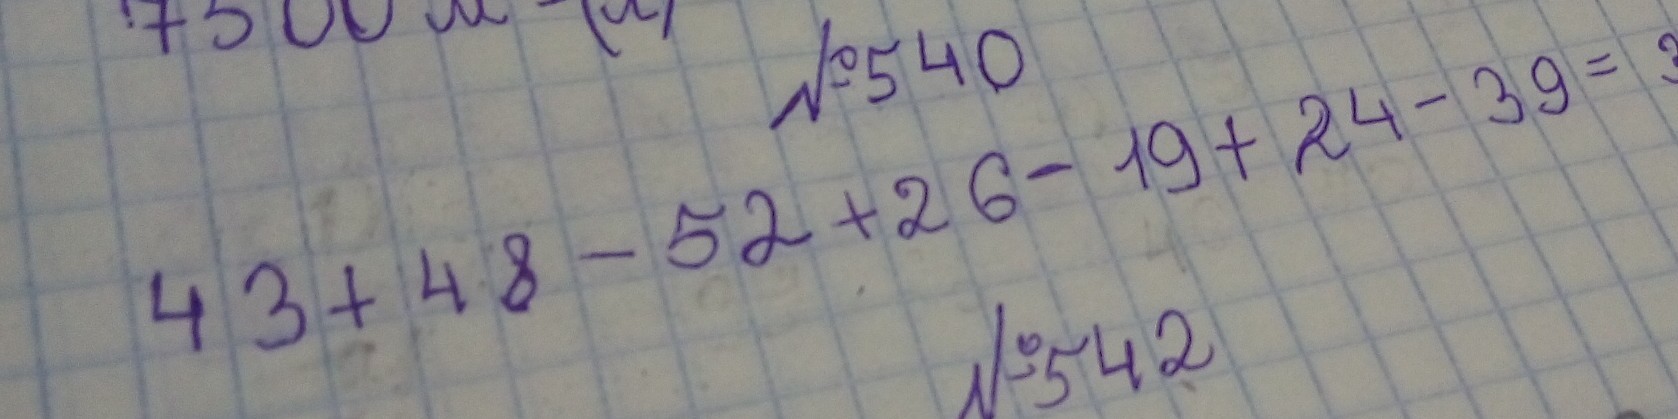 7500 м
№540
43+48-52+26-19+24-39=3
№542